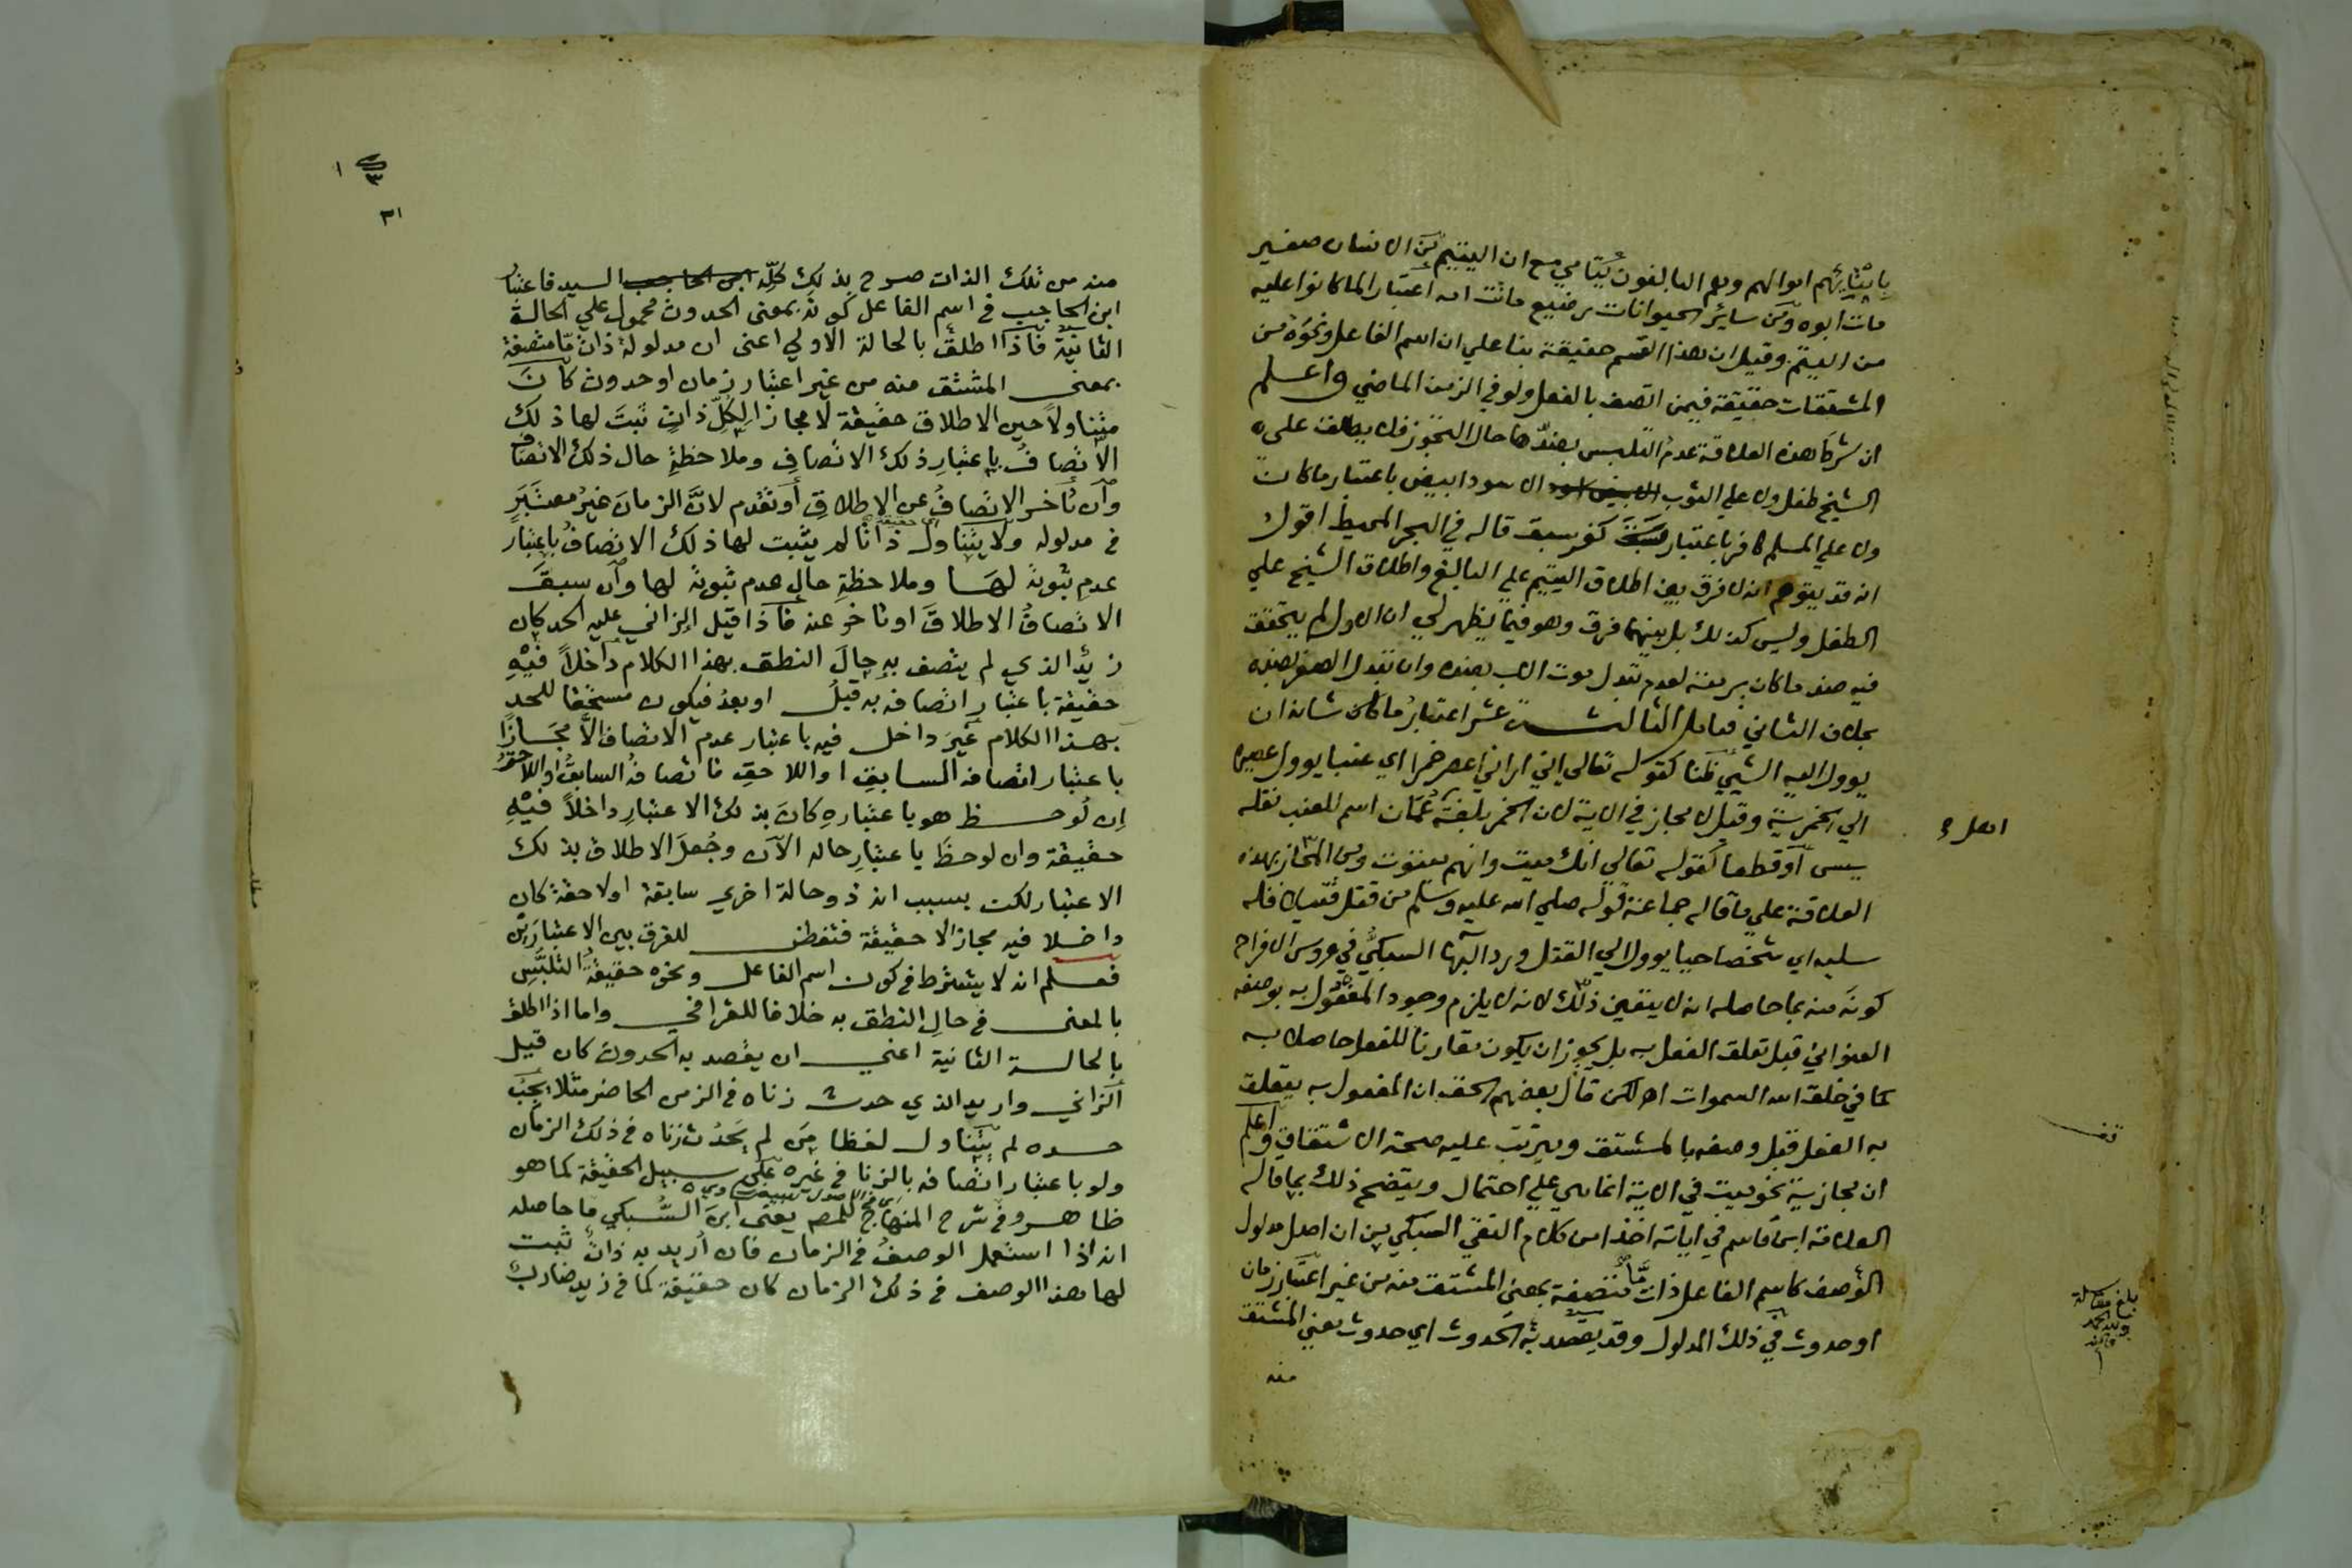 بايتايهم اموالهم وهم البالغون يتامي مع ان اليتيم من الانسان صغير
مات ابوه ومن سائر الحيوانات رضيع ماتت امه اعتبارا لما كانوا عليه
من اليتم وقيل ان هذا القسم حقيقة بنا علي ان اسم الفاعل ونحوه من
المشتقات حقيقة فيمن اتصف بالفعل ولو في الزمن الماضي واعلم
ان شرط هذه العلاقة عدم التلبس بضدها حال التجوز فلا يطلق على
الشيخ طفل ولا علي الثوب الاسود ابيض باعتبار ما كان
ولا علي المسلم كافر باعتبار كفر سبق قاله في البحر المحيط اقول
انه قد يتوهم انه لا فرق بين اطلاق اليتيم علي البالغ واطلاق الشيخ علي
الطفل وليس كذلك بل بينهما فرق وهو فيما يظهر لي ان الاول لم يتحقق
فيه ضد ما كان بريقته لعدم تبدل موت الاب بضده وان تبدل الصغر بضده
بخلاف الثاني فتامل الثالث عشر اعتبار ما كان شانه ان
يوول اليه الشي ظنا كقوله تعالي اني اراني اعصر خمرا اي عنبا يوول عصيره
الي الخمرية وقيل لا مجاز في الاية لان الخمر بلغة عمان اسم للعنب نقله
يسى او قطعا كقوله تعالي انك ميت وانهم ميتون ومن المجاز بهذه
العلاقة علي ما قاله جماعة قوله صلي الله عليه وسلم من قتل قتيلا فله
سلبه اي شخصا حيا يوول الي القتل ورد البها السبكي في عروس الافراح
كونه منه بما حاصله انه لا يتعين ذلك لانه لا يلزم وجود المفعول به بوصفه
العنواني قبل تعلق الفعل به بل يجوز ان يكون مقارنا للفعل حاصلا به
كما في خلق الله السموات اه لكن قال بعضهم الحق ان المفعول به يتعلق
به الفعل قبل وصفه بالمشتق ويترتب عليه صحة الاشتقاق واعلم
ان مجازية نحو ميت في الاية انما هي علي احتمال ويتضح ذلك بما قاله
العلامة ابن قاسم في اياته اخذا من كلام التقي السبكي من ان اصل مدلول
الوصف كاسم الفاعل ذات ما متصفة بمعني المشتق منه من غير اعتبار زمان
او حدوث في ذلك المدلول وقد يقصد به الحدوث اي حدوث معني المشتق
منه
قف
بلغ مقابلة
ولله الحمد
٣١
منه من تلك الذات صرح بذلك كله ابن الحاجب السيد فاعتبار
ابن الحاجب في اسم الفاعل كونه بمعنى الحدوث محمول علي الحالة
الثانية فاذا اطلق بالحالة الاولي اعني ان مدلوله ذات ما متصفة
بمعنى المشتق منه من غير اعتبار زمان او حدوث كان
متناولا حين الاطلاق حقيقة لا مجازا لكل ذات ثبت لها ذلك
الاتصاف باعتبار ذلك الاتصاف وملاحظة حال ذلك الاتصاف
وان تاخر الاتصاف عن الاطلاق او تقدم لان الزمان غير معتبر
في مدلوله ولا يتناول حقيقة ذاتا لم يثبت لها ذلك الاتصاف باعتبار
عدم ثبوته لها وملاحظة حال عدم ثبوته لها وان سبق
الاتصاف الاطلاق او تاخر عنه فاذا قيل الزاني عليه الحد كان
زيد الذي لم يتصف به حال النطق بهذا الكلام داخلا فيه
حقيقة باعتبار اتصافه به قبل او بعد فيكون مستحقا للحد
بهذا الكلام غير داخل فيه باعتبار عدم الاتصاف الا مجازا
باعتبار اتصافه السابق او اللاحق فاتصافه السابق او اللاحق
ان لوحظ هو باعتباره كان بذلك الاعتبار داخلا فيه
حقيقة وان لوحظ باعتبار حاله الان وجعل الاطلاق بذلك
الاعتبار لكن بسبب انه ذو حالة اخري سابقة او لاحقة كان
داخلا فيه مجازا لا حقيقة فتفطن للفرق بين الاعتبارين
فعلم انه لا يشترط في كون اسم الفاعل ونحوه حقيقة التلبس
بالمعنى في حال النطق به خلافا للقرافي واما اذا اطلق
بالحالة الثانية اعني ان يقصد به الحدوث كان قيل
الزاني واريد الذي حدث زناه في الزمن الحاضر مثلا يجب
حده لم يتناول لفظا من لم يحدث زناه في ذلك الزمان
ولو باعتبار اتصافه بالزنا في غيره على سبيل الحقيقة كما هو
ظاهر وفي شرح المنهاج للمص يعني ابن السبكي ما حاصله
انه اذا استعمل الوصف في الزمان فان اريد به ذات ثبت
لها هذا الوصف في ذلك الزمان كان حقيقة كما في زيد ضارب